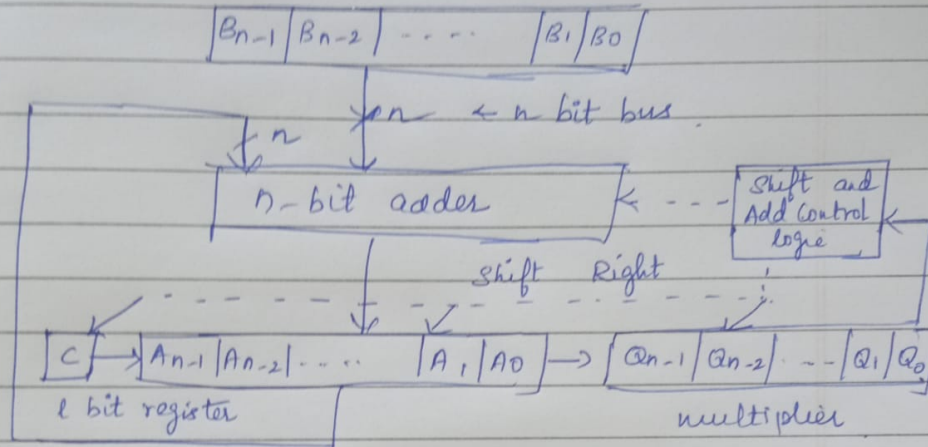 Bn-1 Bn-2 ..... B1 B0
n ← n bit bus.
n
n-bit adder
Shift and
Add Control
logic
Shift Right
C An-1 An-2 ..... A1 A0 Qn-1 Qn-2 .--- Q1 Q0
1 bit register
multiplier